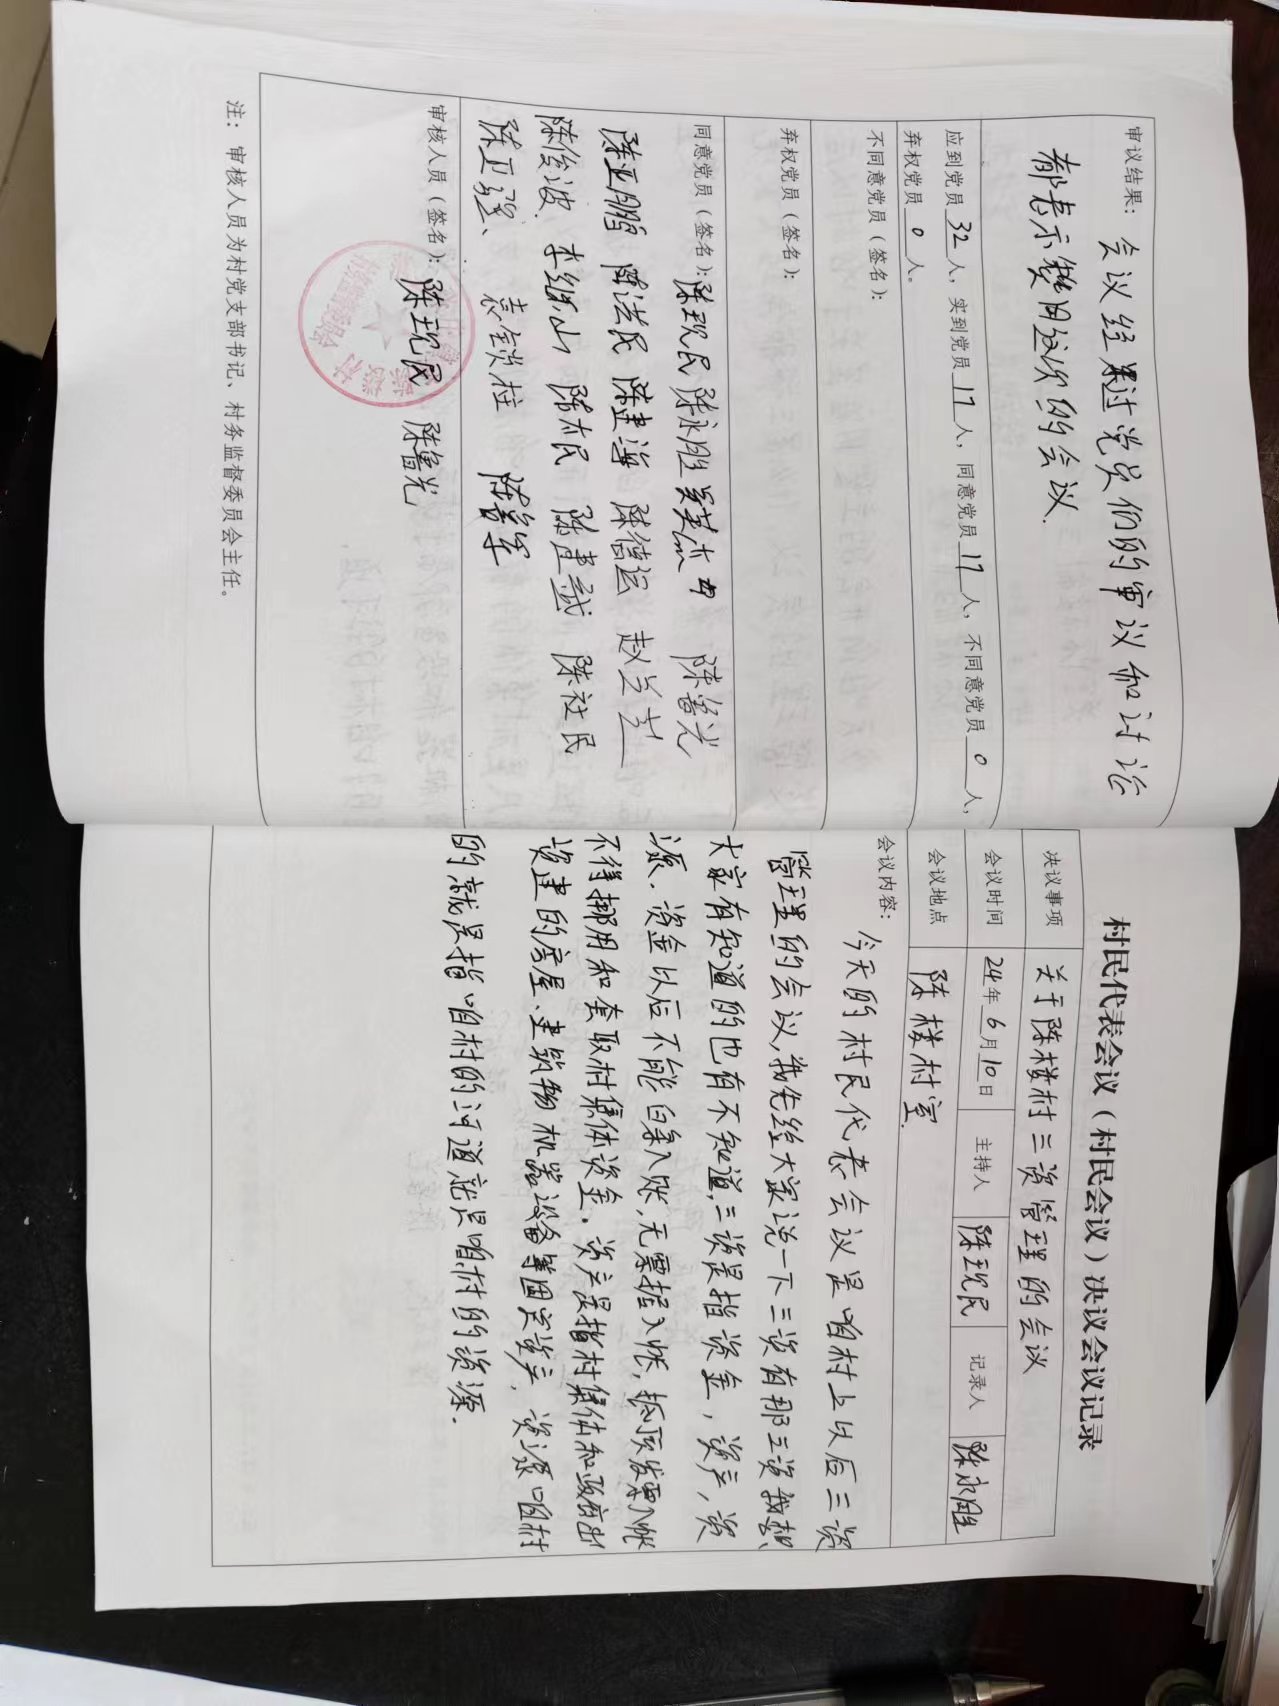 审议结果：会议经过党员们的审议和讨论
都表示赞同这次的会议.
应到党员 32 人，实到党员 17 人，同意党员 17 人，不同意党员 0 人，
弃权党员 0 人。
不同意党员（签名）：
弃权党员（签名）：
同意党员（签名）：陈现民 陈永胜 陈曾光
陈亚鹏 陈洪民 陈建海 陈德运 赵兰芝
陈俊波. 李继山 陈太民 陈建斌 陈社民
陈卫强、 袁锁柱 陈普军
审核人员（签名）：陈现民 陈曾光
注：审核人员为村党支部书记、村务监督委员会主任。
村民代表会议（村民会议）决议会议记录
决议事项 关于陈楼村三资管理的会议
会议时间 24年6月10日 主持人 陈现民 记录人 陈永胜
会议地点 陈楼村室.
会议内容：今天的村民代表会议是咱村上以后三资
管理的会议,我先经大家说一下三资有那三资我想、
大家有知道的也有不知道,三资是指资金，资产，资
源.资金以后不能白条入账,无票据入帐,抵顶发票入帐
不得挪用和套取村集体资金.资产是指村集体和政府出
资建的房屋、建筑物机器设备等固定资产,资源咱村
的就是指咱村的河道就是咱村的资源.